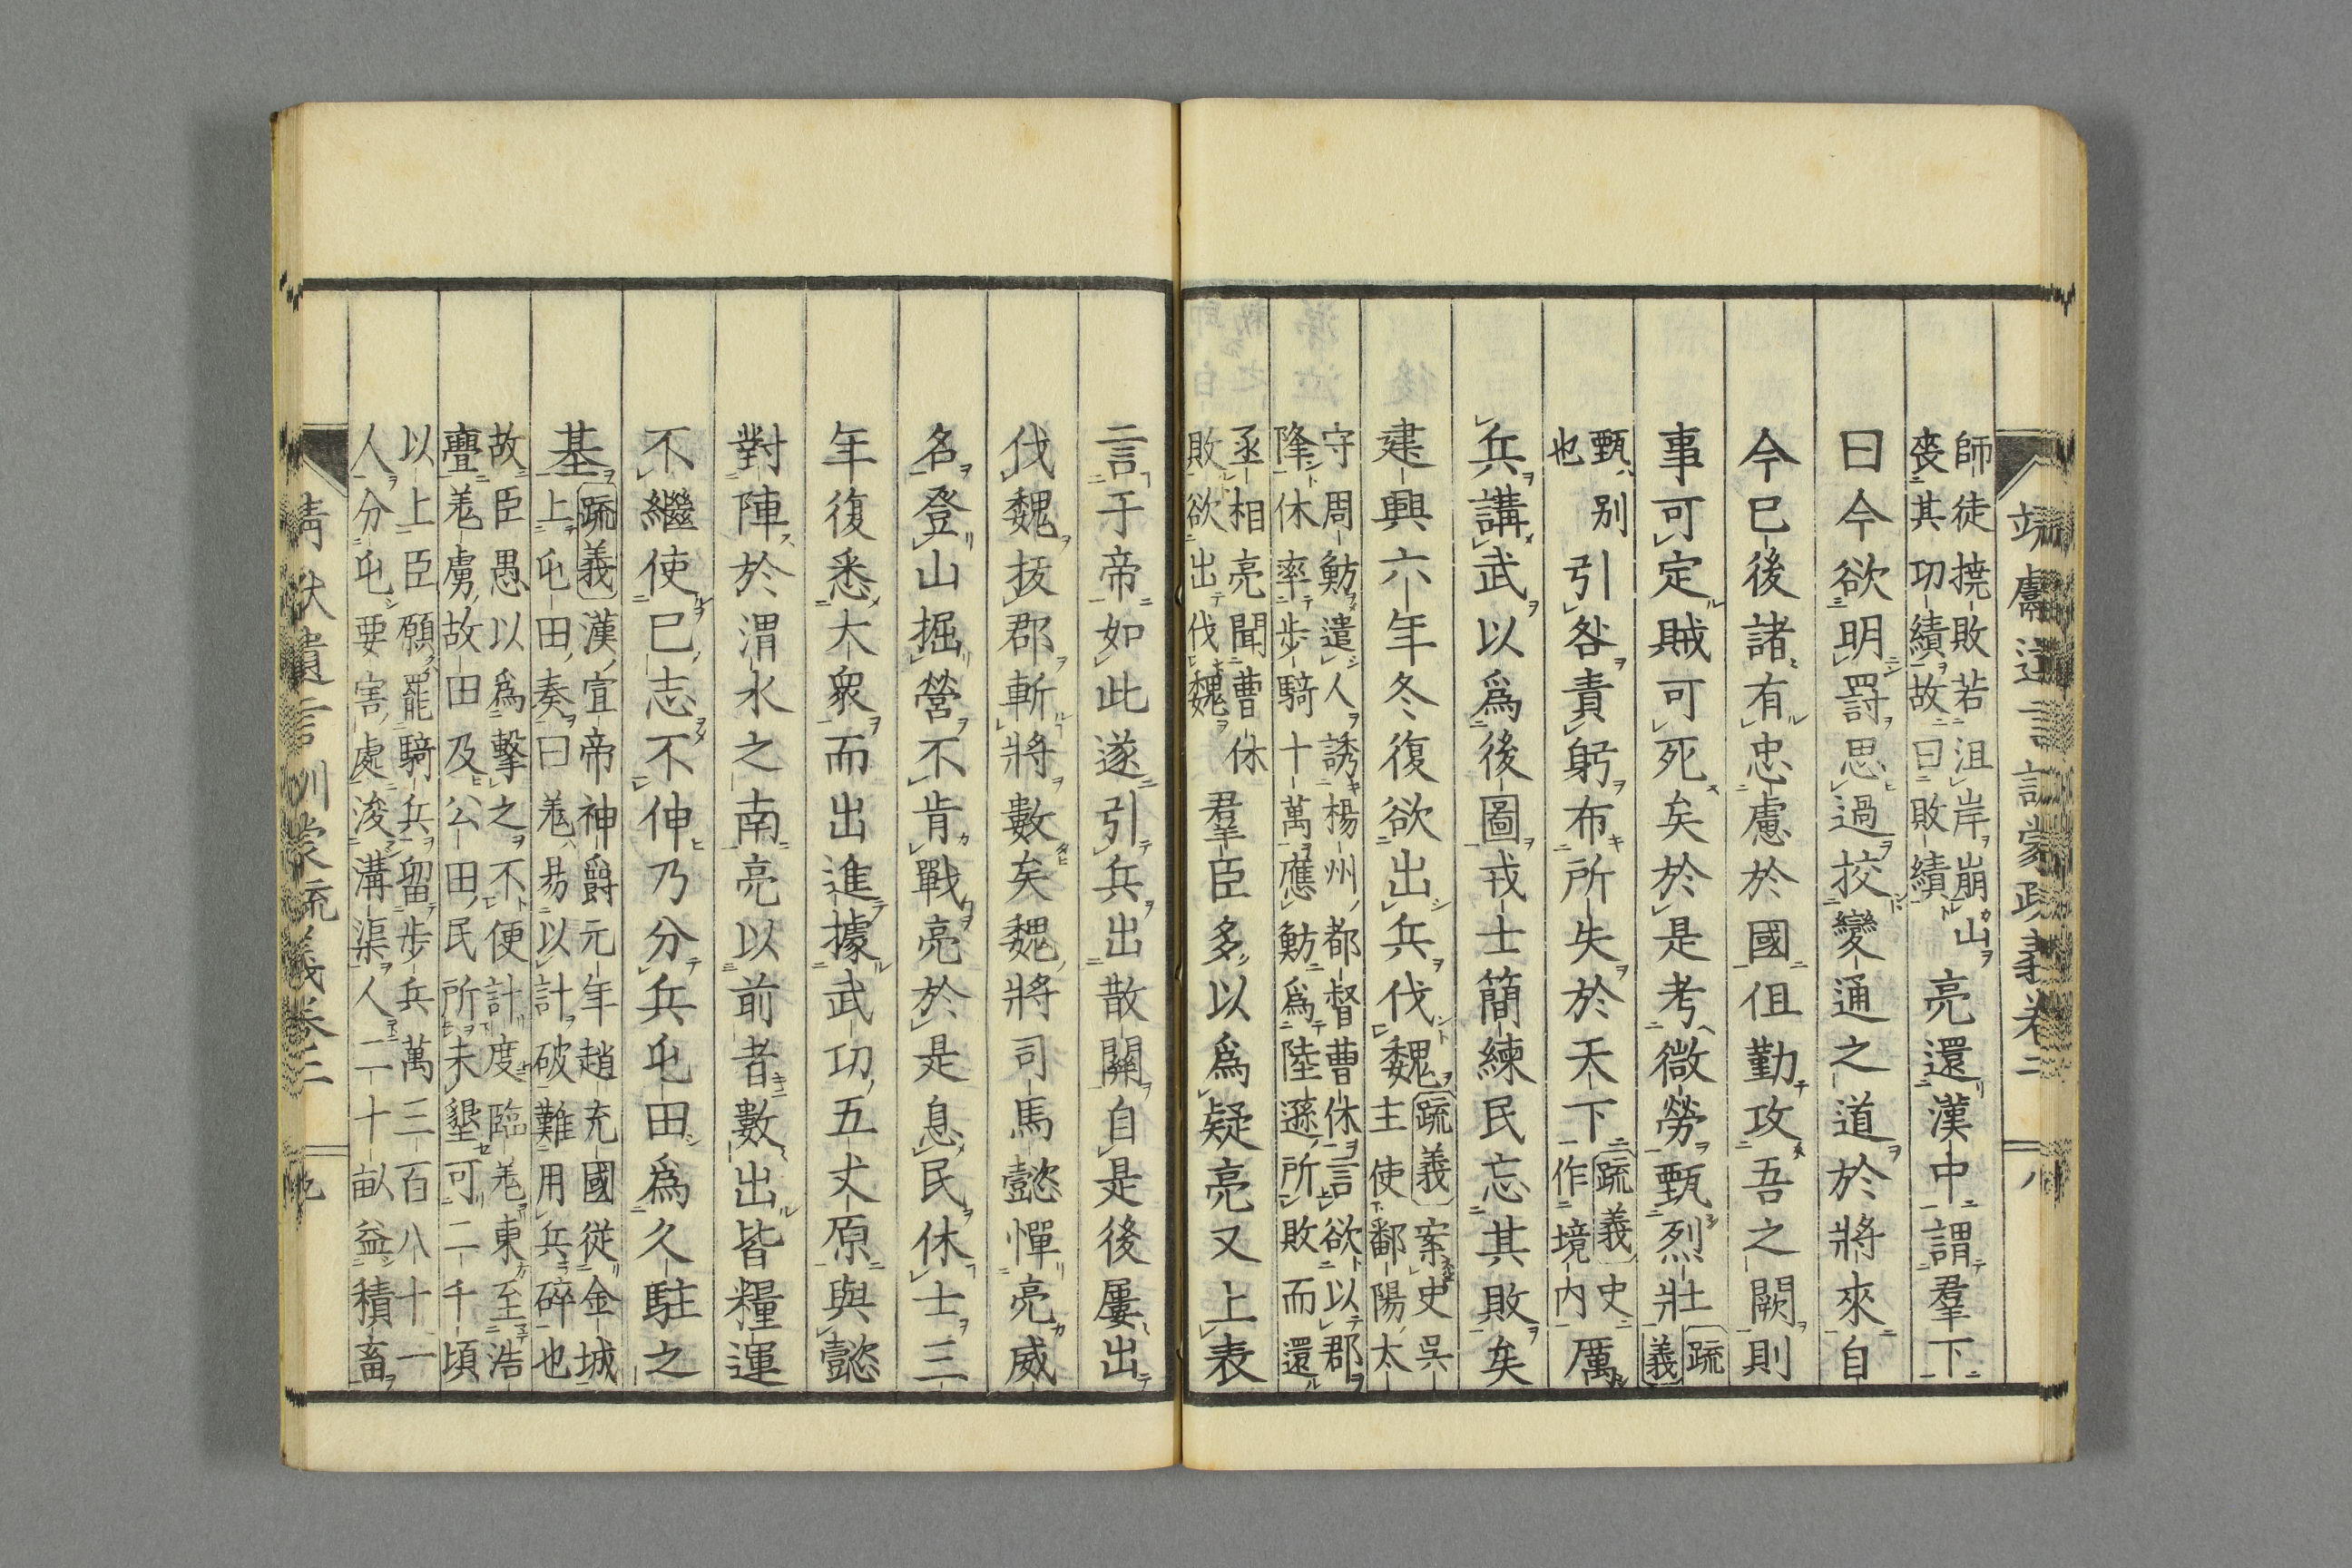 靖獻遺言訓蒙疏義卷二 八
師徒撓敗若沮岸崩山
喪其功績故曰敗績
亮還漢中謂羣下
曰今欲明罰思過挍變通之道於將來自
今已後諸有忠慮於國但勤攻吾之闕則
事可定賊可死矣於是考微勞甄烈壯
疏
義
甄別
也
引咎責躬布所失於天下
疏義史
作境内
厲
兵講武以爲後圖戎士簡練民忘其敗矣
建興六年冬復欲出兵伐魏
疏義案史吳
主使鄱陽太
守周魴遣人誘楊州都督曹休言欲以郡
降休率步騎十萬應魴爲陸遜所敗而還
丞相亮聞曹休
敗欲出伐魏
羣臣多以爲疑亮又上表
言于帝如此遂引兵出散關自是後屢出
伐魏拔郡斬將數矣魏將司馬懿憚亮威
名登山掘營不肯戰亮於是息民休士三
年復悉大衆而出進據武功五丈原與懿
對陣於渭水之南亮以前者數出皆糧運
不繼使已志不伸乃分兵屯田爲久駐之
基
疏義漢宣帝神爵元年趙充國從金城
上屯田奏曰羗易以計破難用兵碎也
故臣愚以爲擊之不便計度臨羗東至浩
亹羗虜故田及公田民所未墾可二千頃
以上臣願罷騎兵留步兵萬三百八十一
人分屯要害處浚溝渠人二十畝益積畜
靖献遺言訓蒙疏義卷二 九